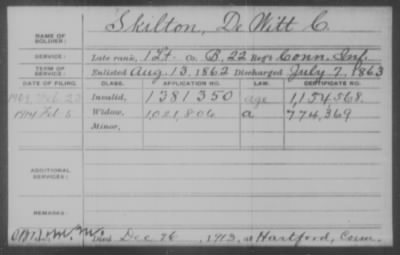 NAME OF SOLDIER: Skilton, De Witt C.
SERVICE: Late rank, 1 Lt. Co. B, 22 Reg't Conn. Inf.
TERM OF SERVICE: Enlisted Aug. 13, 1862 Discharged July 7, 1863
DATE OF FILING. CLASS. APPLICATION NO. LAW. CERTIFICATE NO.
Invalid, 1381350 age 1,154,568.
1914 Feb 5 Widow, 1,021,806 a 774,369
Minor,
ADDITIONAL SERVICES:
REMARKS:
Died Dec 26, 1913, at Hartford, Conn.